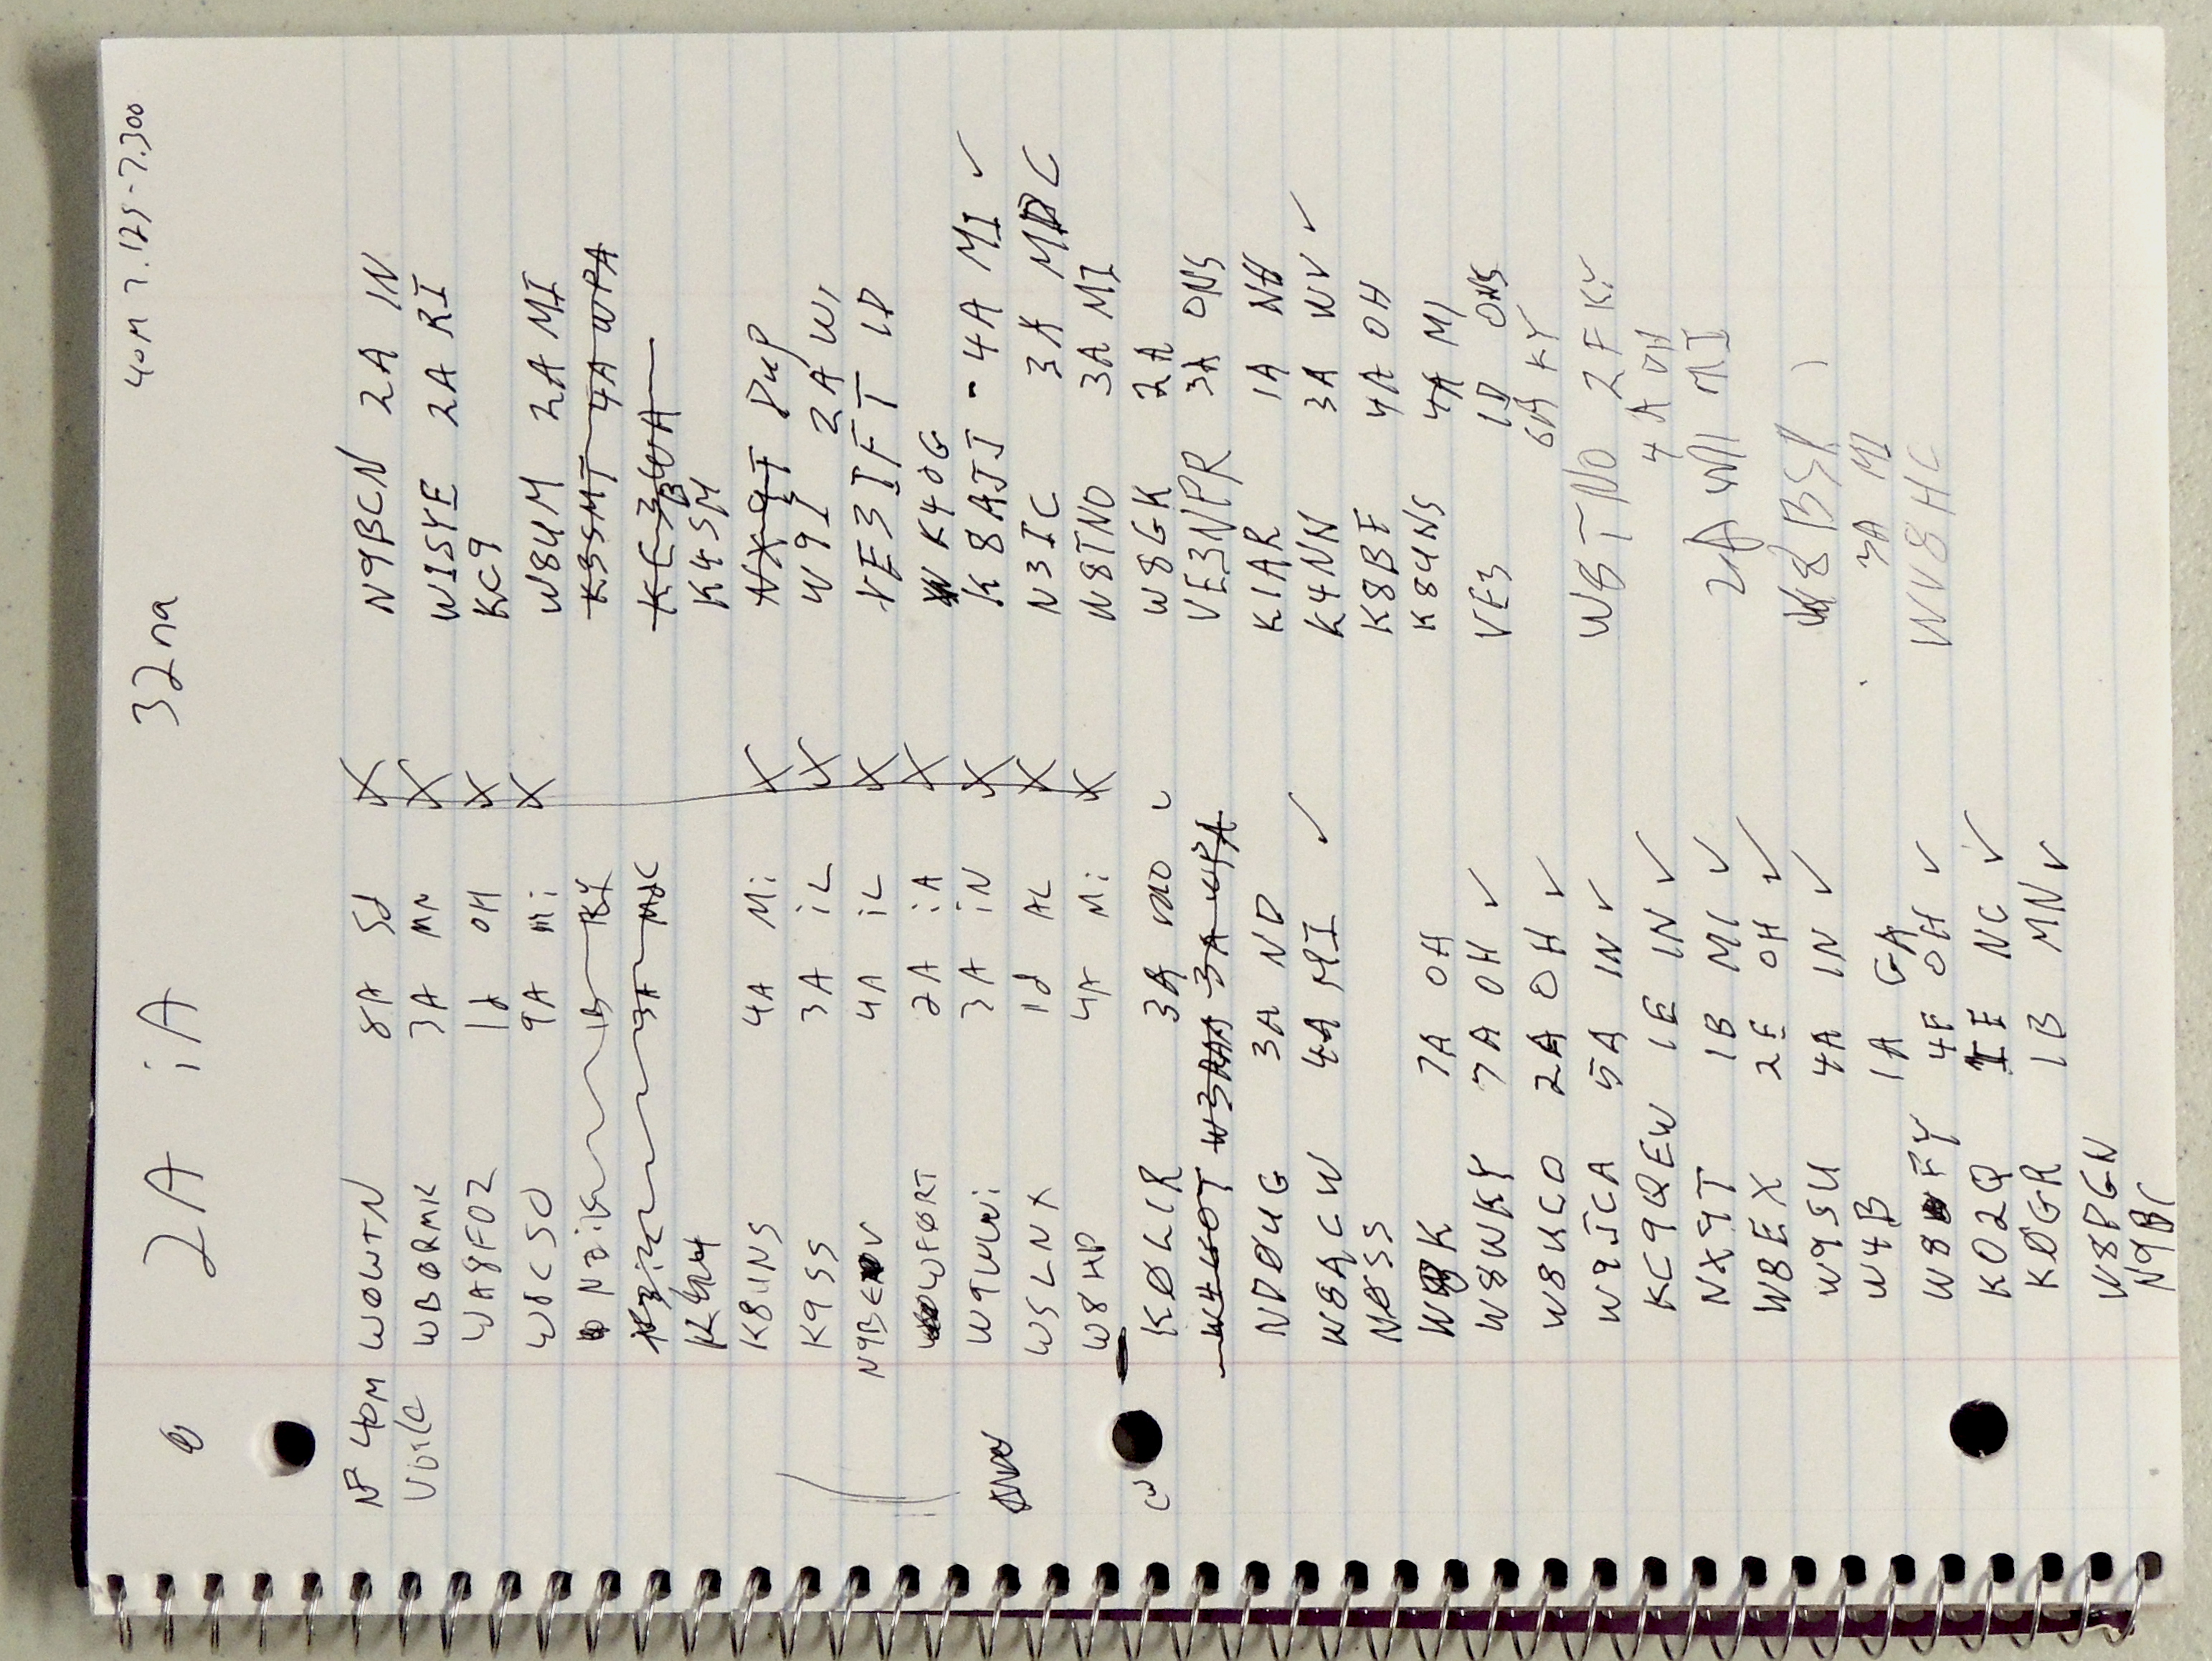 2A iA 32na 40M 7.125-7.300
40M W0WTN 8A Sd
Voice WB0RMK 3A MN
WA8FOZ 1d OH
W8CSO 9A Mi
K8UNS 4A Mi
K9SS 3A iL
4A iL
W0FORT 2A iA
3A iN
W5LNX 1d AL
W8HP 4A Mi
K0LIR 3A MO ✓
W4GOT 3A WPA
ND0UG 3A ND
W8ACW 4A MI ✓
N8SS
7A OH
W8WKY 7A OH ✓
W8UCO 2A OH ✓
W9JCA 5A IN ✓
KC9QEW 1E IN ✓
NX9T 1B MI ✓
W8EX 2F OH ✓
W9SU 4A IN ✓
W4B 1A GA
W8FY 4F OH ✓
KO2Q 1E NC ✓
K0GR 1B MN ✓
W8PGN
N9BC
N9BCN 2A IN
W1SYE 2A RI
KC9
W8UM 2A MI
K3SMT 4A WPA
KC3BWA
K4SM
NX9T DUP
W9I 2A WI
VE3IFT 1D
K40G
K8AJJ - 4A MI ✓
N3IC 3A MDC
W8TNO 3A MI
W8GK 2A
VE3NPR 3A ONS
K1AR 1A NH
K4NN 3A WV ✓
K8BF 4A OH
K8UNS 4A MI
VE3 1D ONS
6A KY
W8TNO 2F KY
4A OH
2A MI
W8BSK
3A MI
WV8HC